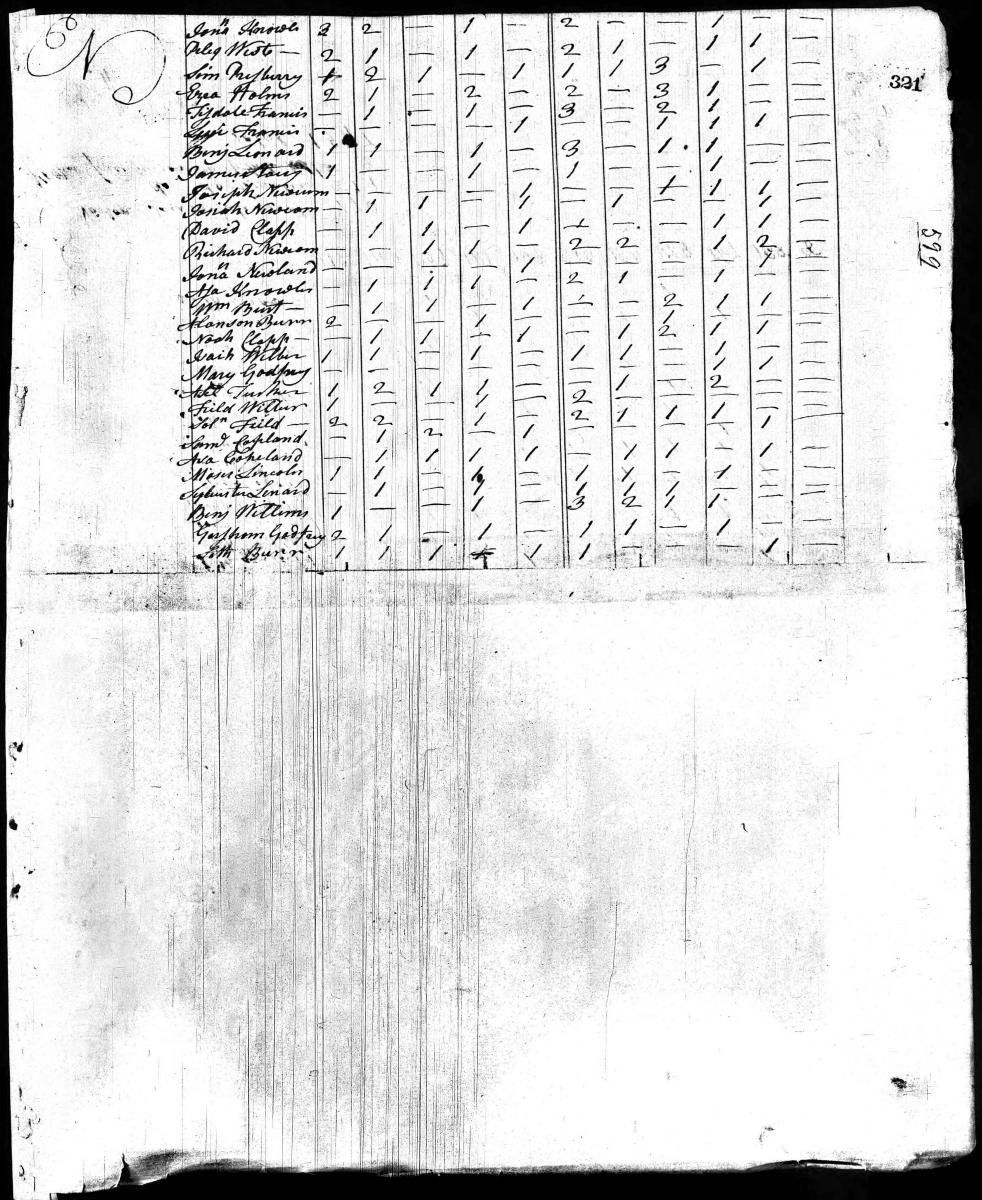 N
321
599
Jonⁿ Knowles 3 2 — 1 — 2 — — 1 — —
Peleg West — 2 1 — 1 — 2 1 — 1 1 —
Sim Presberry 1 2 1 — 1 1 1 3 — 1 —
Ezra Holms 2 1 — 2 — 2 — 3 1 — —
Tisdale Francis — 1 — 1 — 3 — 2 1 — —
Francis — — — — 1 — — 1 1 1 —
Benj Leonard 1 1 — 1 — 3 — 1 1 — —
James 1 — — 1 — 1 — — 1 — —
Joseph Newcom — — — — 1 — — 1 1 1 —
Josiah Newcom — 1 1 — 1 — 1 — — 1 —
David Clapp — 1 1 — 1 1 — — 1 1 —
Richard Newcom — — 1 1 — 2 2 — 1 2 —
Jonⁿ Newland — — — — 1 — — — — 1 —
Asa Knowles — 1 1 1 — 2 1 — 1 — —
Wm Burt — — 1 1 — 1 1 — 2 1 1 —
Alanson Burr 2 — — 1 — — — 1 — — —
Noah Clapp — — 1 1 1 1 — 1 2 1 1 —
Isaih Wilber 1 1 — 1 — 1 1 — 1 — —
Mary Godfrey — — — — — — — — 1 1 —
Abel Tucker 1 2 1 1 — — 1 — 2 — —
Field Wilbur 1 — — 1 — 2 — — — — —
Solⁿ Field — 2 2 — 1 — 2 1 1 1 — —
Samˡ Copland — 1 2 — 1 — — — — 1 —
Asa Copeland — 1 1 1 1 — 1 1 — 1 —
Moses Lincoln 1 1 — 1 — 1 1 — 1 — —
Sylvester Lenard — 1 — 1 — 1 1 1 — — —
Benj Willims 1 — — 1 — 3 2 1 1 — —
Gershom Godfrey 2 1 — 1 — 1 1 — 1 — —
Seth Burr 1 1 1 1 1 — — — 1 —